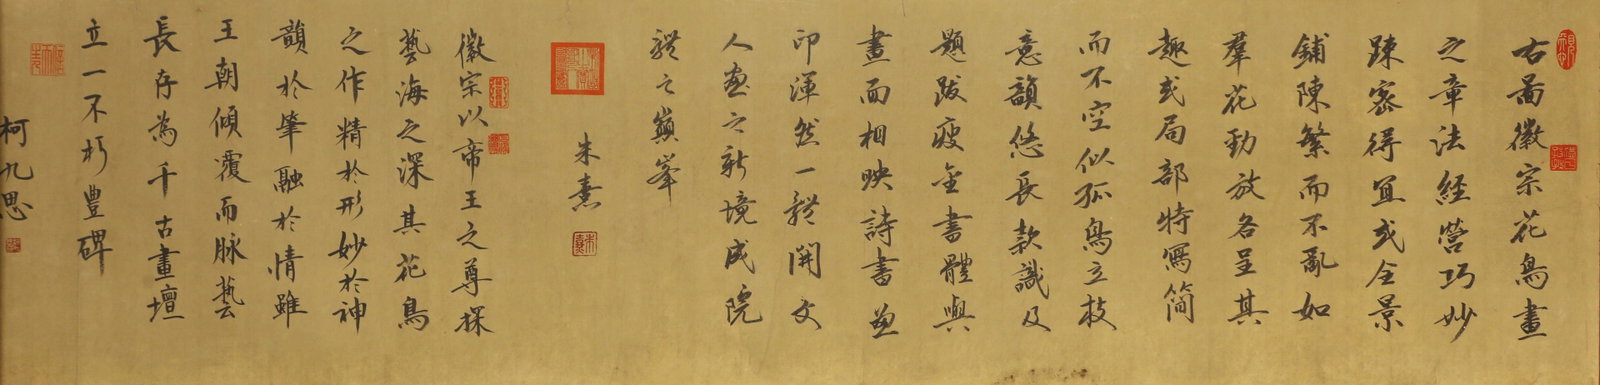 右圖徽宗花鳥畫
之章法經營巧妙
疎密得宜或全景
鋪陳繁而不亂如
羣花勁放各呈其
趣或局部特寫簡
而不空似孤鳥立枝
意韻悠長款識及
題跋瘦金書體與
畫而相映詩書畫
印渾然一體開文
人畫之新境成院
體之巔峯
朱熹
朱熹
徽宗以帝王之尊探
藝海之深其花鳥
之作精於形妙於神
韻於筆融於情雖
王朝傾覆而脉藝
長存為千古畫壇
立一不朽豐碑
柯九思